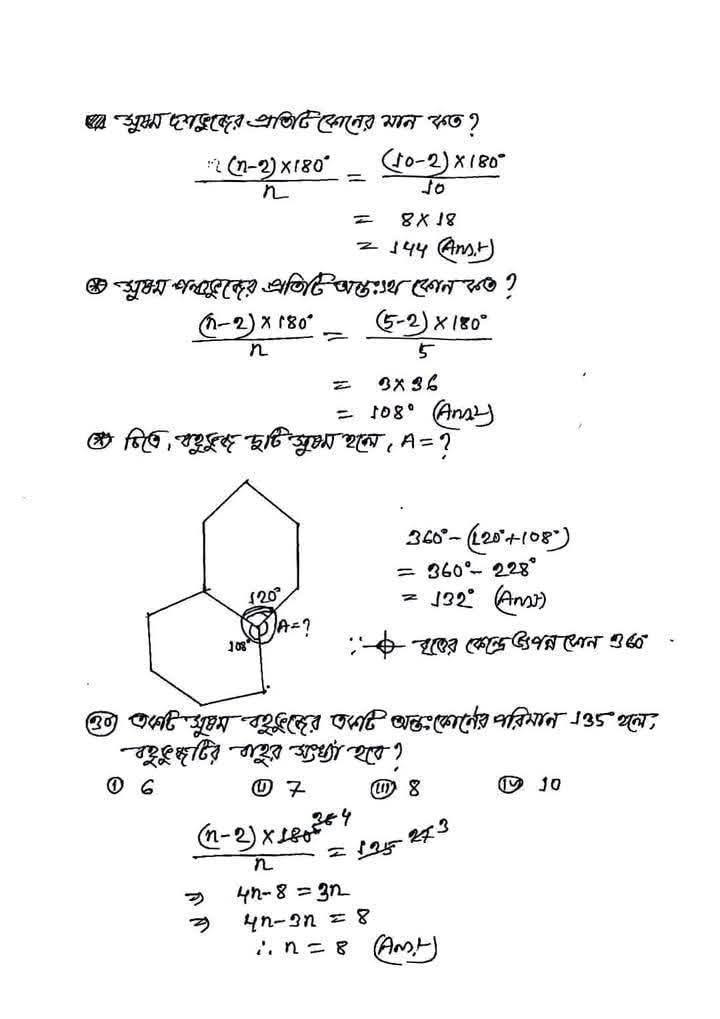 সুষম দশভুজের প্রতিটি কোনের মান কত?
(n-2)×180° / n = (10-2)×180° / 10
= 8×18
= 144 (Ans:)
⊛ সুষম পঞ্চভুজের প্রতিটি অন্তঃস্থ কোন কত?
(n-2)×180° / n = (5-2)×180° / 5
= 3×36
= 108° (Ans:)
⊛ চিত্রে, বহুভুজ দুটি সুষম হলে, A=?
120°
A=?
108°
360°-(120°+108°)
= 360°-228°
= 132° (Ans:)
∵ বৃত্তের কেন্দ্রে উৎপন্ন কোন 360°
৩০ একটি সুষম বহুভুজের একটি অন্তঃকোনের পরিমান 135° হলে,
বহুভুজটির বাহুর সংখ্যা হবে?
(i) 6 (ii) 7 (iii) 8 (iv) 10
(n-2)×180° 36 4 / n = 135 27 3
⇒ 4n-8 = 3n
⇒ 4n-3n = 8
∴ n = 8 (Ans:)